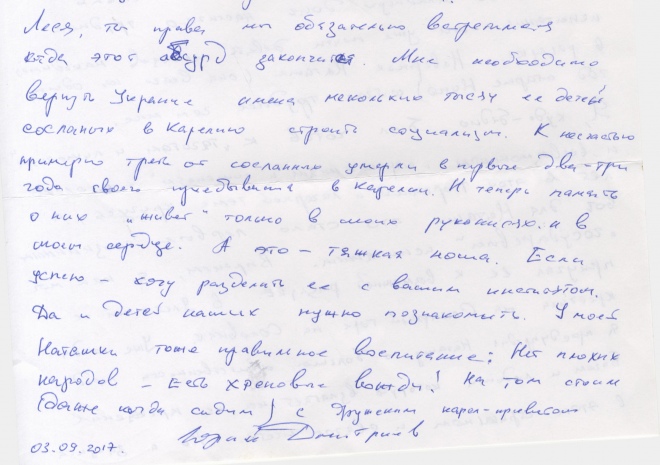 Леся, ты права мы обязательно встретимся
когда этот абсурд закончится. Мне необходимо
вернуть Украине имена нескольких тысяч ее детей
сосланых в Карелию строить социализм. К несчастью
примерно треть от сосланных умерли в первые два-три
года своего пребывания в Карелии. И теперь память
о них „живет" только в моих рукописях. и в
моем сердце. А это – тяжкая ноша. Если
успею – хочу разделить ее с вашим институтом.
Да и детей наших нужно познакомить. У моей
Наташки тоже правильное воспитание: Нет плохих
народов – Есть хреновые вожди! На том стоим
(даже когда сидим) с дружеским карел-приветом
03.09.2017. Юрий Дмитриев